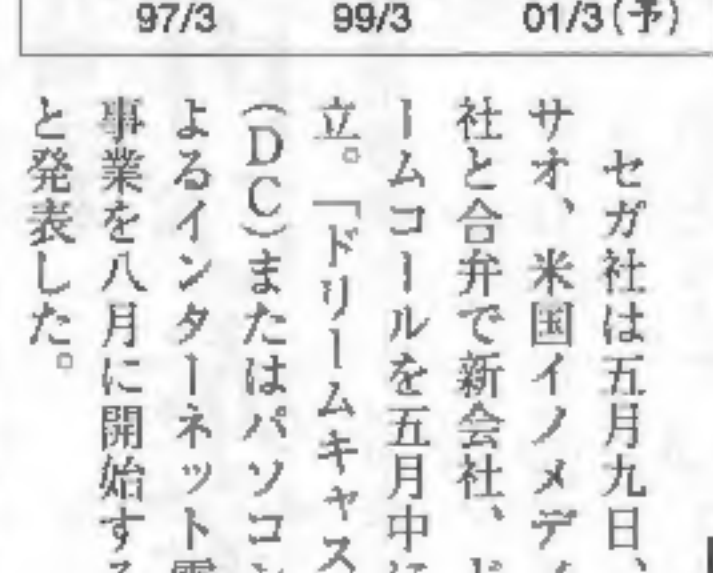 97/3 99/3 01/3(予)
セガ社は五月九日、
サオ、米国イノメディ
社と合弁で新会社、ド
ームコールを五月中に
立。「ドリームキャス
(DC)またはパソコン
よるインターネット電
事業を八月に開始する
と発表した。